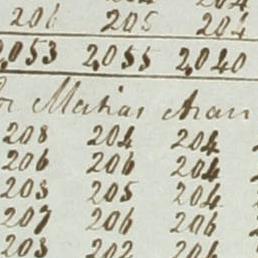 206 205 204
2,053 2,055 2,040
Matias Aran
208 204 204
206 206 204
203 205 204
207 206 206
203 202 206